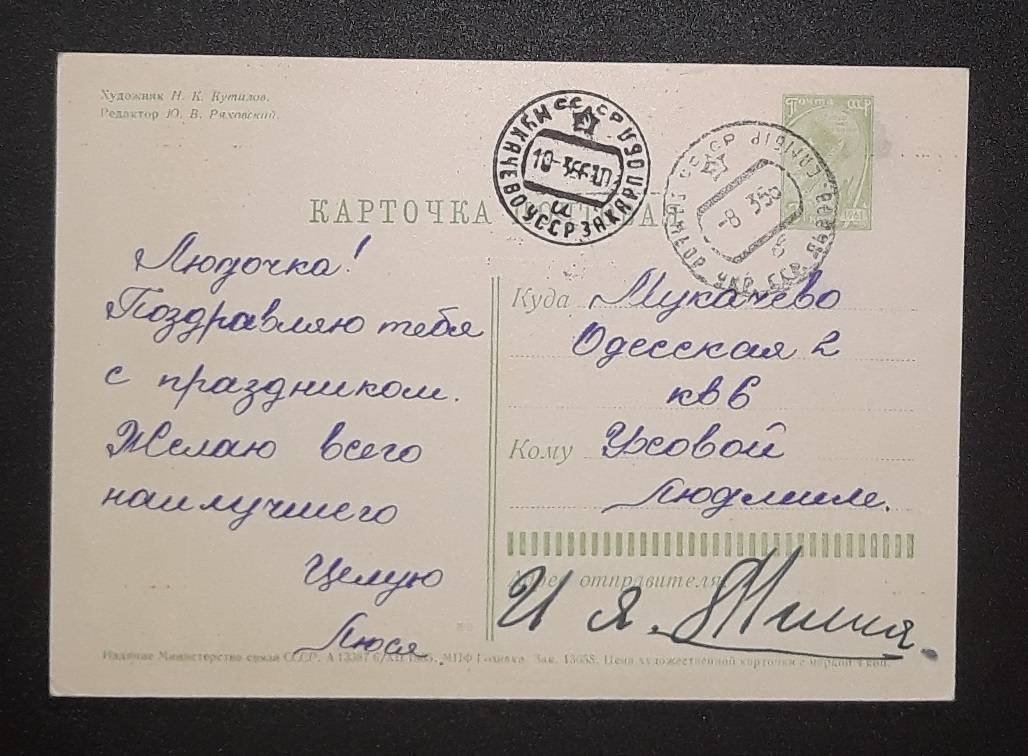 Художник Н. К. Кутилов.
Редактор Ю. В. Ряховский.
Почта СССР
КАРТОЧКА
МУКАЧЕВО УССР ЗАКАРП ОБЛ
СССР
10-3
СССР
УКР. ССР
-8 3
Людочка!
Поздравляю тебя
с праздником.
Желаю всего
наилучшего
Целую
Люся
Куда Мукачево
Одесская 2
кв 6
Кому Ужовой
Людмиле.
отправителя
И я.
Издание Министерства связи СССР. МПФ Гознака. Зак. 13058. Цена художественной карточки с маркой 4 коп.